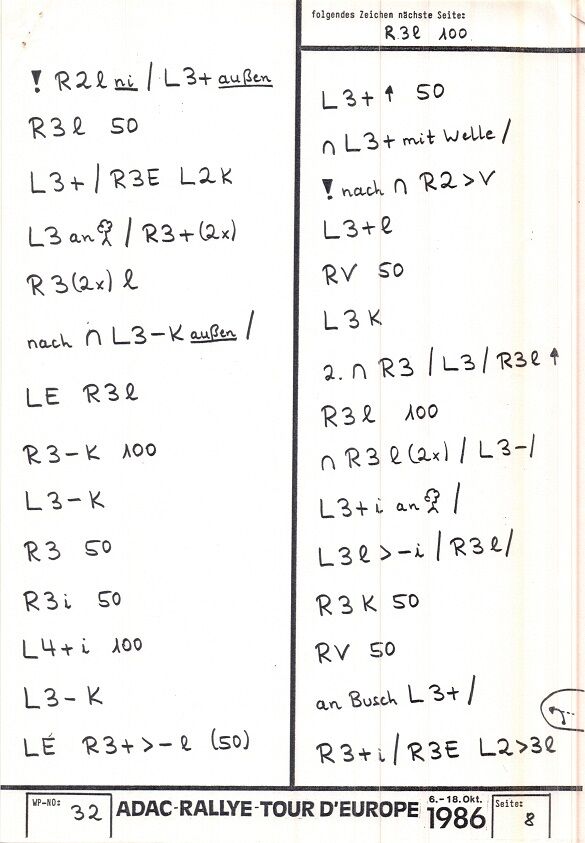 folgendes Zeichen nächste Seite:
R3l 100
! R2l ni / L3+ außen
R3l 50
L3+ / R3E L2K
L3 an / R3+(2x)
R3(2x) l
nach ∩ L3-K außen /
LE R3l
R3-K 100
L3-K
R3 50
R3i 50
L4+i 100
L3-K
LE R3+>-l (50)
L3+ ↑ 50
∩ L3+ mit Welle /
! nach ∩ R2>V
L3+l
RV 50
L3K
2. ∩ R3 / L3 / R3l ↑
R3l 100
∩ R3l(2x) / L3-/
L3+i an /
L3l>-i / R3l/
R3K 50
RV 50
an Busch L3+ /
R3+i / R3E L2>3l
WP-NO: 32
ADAC-RALLYE-TOUR D'EUROPE
6.-18.Okt.
1986
Seite: 8